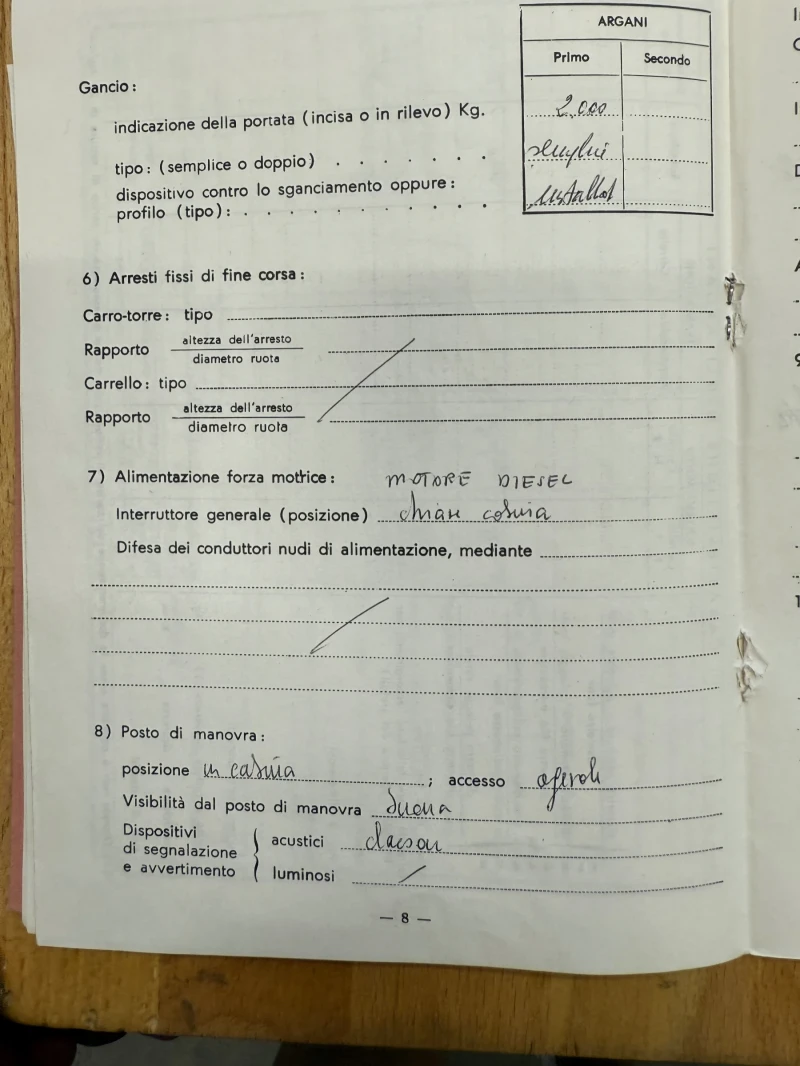 ARGANI
Primo Secondo
Gancio:
indicazione della portata (incisa o in rilevo) Kg. 2.000
tipo: (semplice o doppio) . . . . . . .
dispositivo contro lo sganciamento oppure:
profilo (tipo): . . . . . . . . . . .
6) Arresti fissi di fine corsa:
Carro-torre: tipo
Rapporto altezza dell'arresto
diametro ruota
Carrello: tipo
Rapporto altezza dell'arresto
diametro ruota
7) Alimentazione forza motrice: MOTORE DIESEL
Interruttore generale (posizione) chiave cabina
Difesa dei conduttori nudi di alimentazione, mediante
8) Posto di manovra:
posizione in cabina ; accesso
Visibilità dal posto di manovra buona
Dispositivi
di segnalazione
e avvertimento
acustici clacson
luminosi /
— 8 —